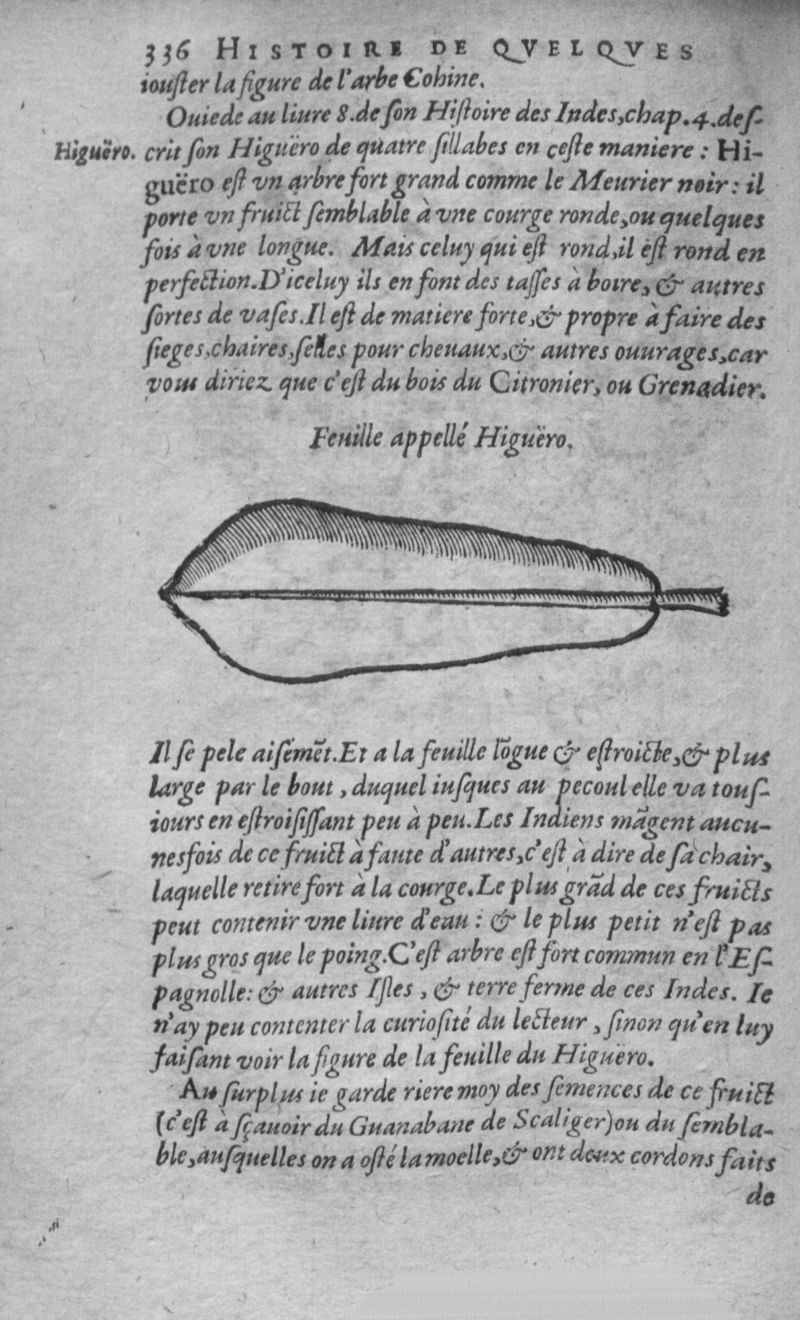 336 HISTOIRE DE QVELQVES
iouſter la figure de l'arbe Cohine.
Ouiede au liure 8. de ſon Hiſtoire des Indes, chap. 4. deſ-
Higuëro.
crit ſon Higuëro de quatre ſillabes en ceſte maniere : Hi-
guëro eſt vn arbre fort grand comme le Meurier noir : il
porte vn fruict ſemblable à vne courge ronde, ou quelques
fois à vne longue. Mais celuy qui eſt rond, il eſt rond en
perfection. D'iceluy ils en font des taſſes à boire, & autres
ſortes de vaſes. Il eſt de matiere forte, & propre à faire des
ſieges, chaires, ſelles pour cheuaux, & autres ouurages, car
vous diriez que c'eſt du bois du Citronier, ou Grenadier.
Feuille appellé Higuëro.
Il ſe pele aiſémẽt. Et a la feuille lõgue & eſtroicte, & plus
large par le bout, duquel iuſques au pecoul elle va touſ-
iours en eſtroiſiſſant peu à peu. Les Indiens mãgent aucu-
nesfois de ce fruict à faute d'autres, c'eſt à dire de ſa chair,
laquelle retire fort à la courge. Le plus grãd de ces fruicts
peut contenir vne liure d'eau : & le plus petit n'eſt pas
plus gros que le poing. C'eſt arbre eſt fort commun en l'Eſ-
pagnolle: & autres Iſles, & terre ferme de ces Indes. Ie
n'ay peu contenter la curioſité du lecteur, ſinon qu'en luy
faiſant voir la figure de la feuille du Higuëro.
Au ſurplus ie garde riere moy des ſemences de ce fruict
(c'eſt à ſçauoir du Guanabane de Scaliger) ou du ſembla-
ble, auſquelles on a oſté la moelle, & ont deux cordons faits
de